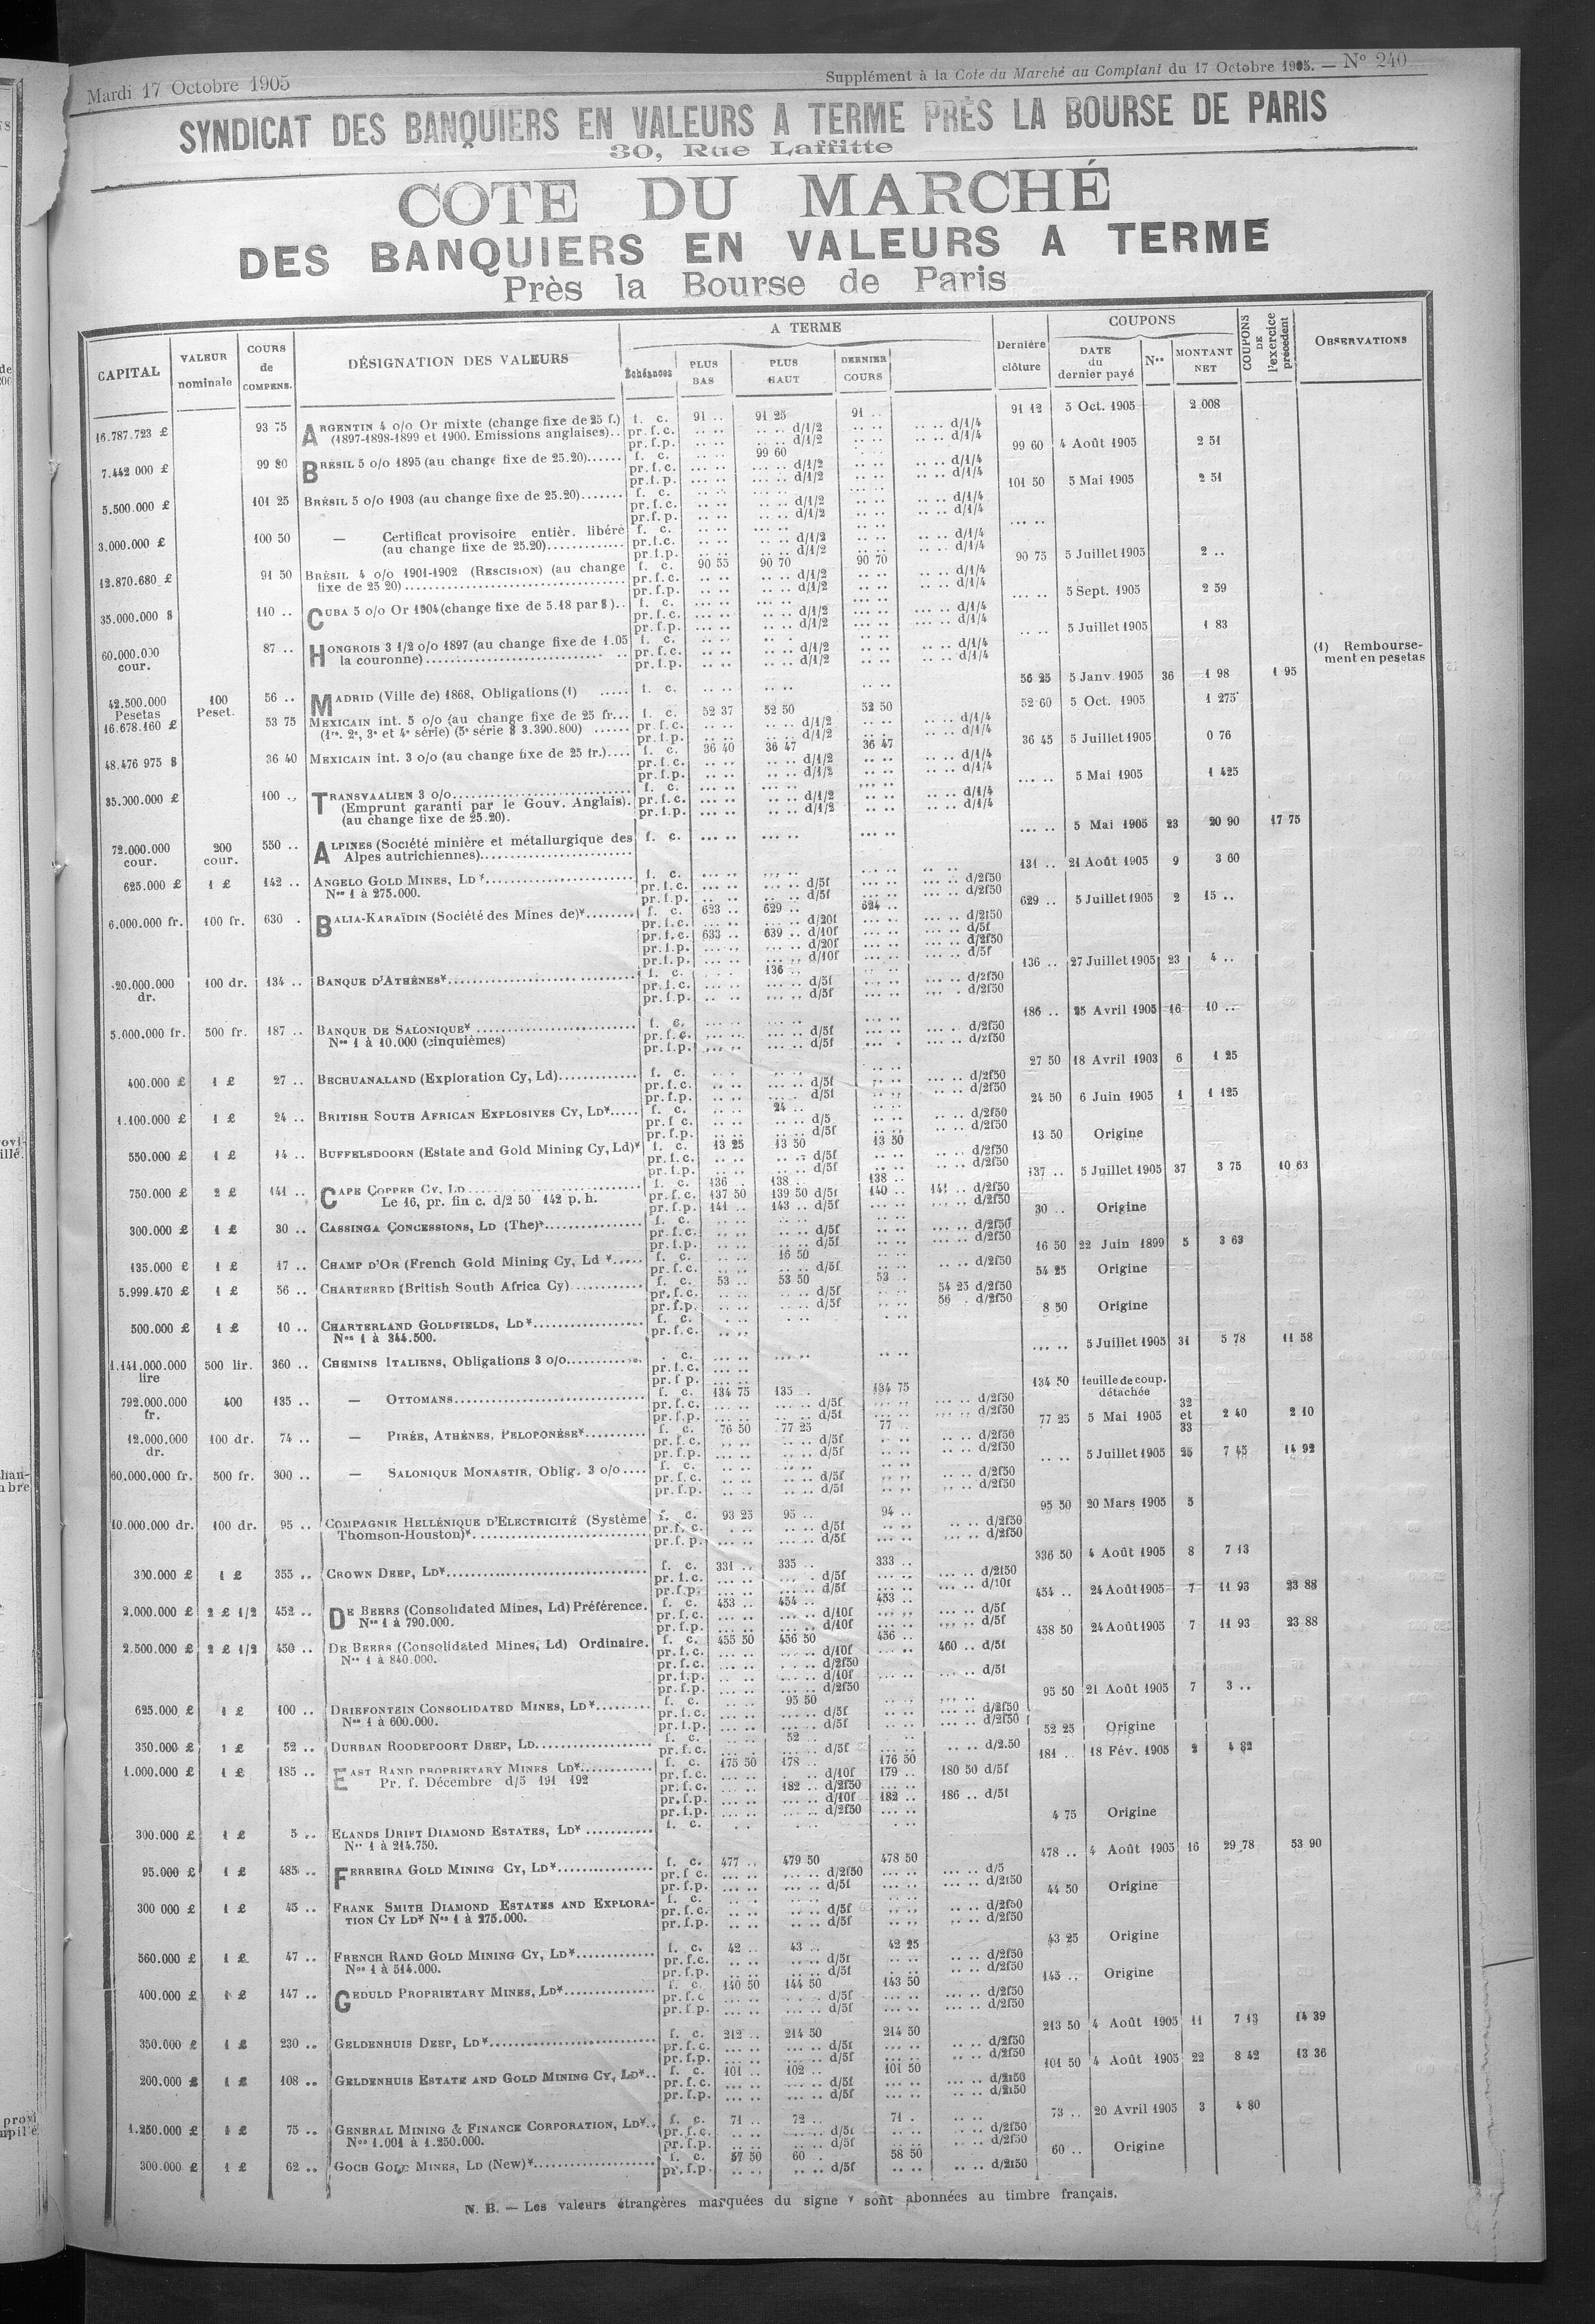 Mardi 17 Octobre 1905
Supplément à la Cote du Marché au Comptant du 17 Octobre 1905. — N° 240
SYNDICAT DES BANQUIERS EN VALEURS A TERME PRÈS LA BOURSE DE PARIS
30, Rue Laffitte
COTE DU MARCHÉ
DES BANQUIERS EN VALEURS A TERME
Près la Bourse de Paris
CAPITAL VALEUR nominale COURS de COMPENS. DÉSIGNATION DES VALEURS A TERME Échéances PLUS BAS PLUS HAUT DERNIER COURS Dernière clôture COUPONS DATE du dernier payé Nos MONTANT NET COUPONS DE l'exercice précédent OBSERVATIONS
16.787.723 £ 93 75 ARGENTIN 4 o/o Or mixte (change fixe de 25 f.) f. c. 91 .. 91 25 91 .. 91 12 5 Oct. 1905 2 008
(1897-1898-1899 et 1900. Emissions anglaises).. pr.f.c. d/1/2 d/1/4
pr.f.p. d/1/2 d/1/4
7.442.000 £ 99 80 BRÉSIL 5 o/o 1895 (au change fixe de 25.20)...... f. c. 99 60 99 60 4 Août 1905 2 51
pr.f.c. d/1/2 d/1/4
pr.f.p. d/1/2 d/1/4
5.500.000 £ 101 25 BRÉSIL 5 o/o 1903 (au change fixe de 25.20)....... f. c. 101 50 5 Mai 1905 2 51
pr.f.c. d/1/2 d/1/4
pr.f.p. d/1/2 d/1/4
3.000.000 £ 100 50 — Certificat provisoire entièr. libéré f. c. .... ..
(au change fixe de 25.20)............. pr.f.c. d/1/2 d/1/4
pr.f.p. d/1/2 d/1/4
12.870.680 £ 91 50 BRÉSIL 4 o/o 1901-1902 (RESCISION) (au change f. c. 90 55 90 70 90 70 90 75 5 Juillet 1905 2 ..
fixe de 25 20)...... pr.f.c. d/1/2 d/1/4
pr.f.p. d/1/2 d/1/4
35.000.000 $ 110 .. CUBA 5 o/o Or 1904 (change fixe de 5.18 par $).. f. c. 5 Sept. 1905 2 59
pr.f.c. d/1/2 d/1/4
pr.f.p. d/1/2 d/1/4
60.000.000 cour. 87 .. HONGROIS 3 1/2 o/o 1897 (au change fixe de 1.05 f. c. 5 Juillet 1905 1 83
la couronne)...... pr.f.c. d/1/2 d/1/4
pr.f.p. d/1/2 d/1/4
(1) Rembourse-
ment en pesetas
42.500.000 Pesetas 100 Peset. 56 .. MADRID (Ville de) 1868, Obligations (1) ..... f. c. 56 25 5 Janv. 1905 36 1 98 1 95
16.678.160 £ 53 75 MEXICAIN int. 5 o/o (au change fixe de 25 fr... f. c. 52 37 52 50 52 50 52 60 5 Oct. 1905 1 275
(1re. 2e, 3e et 4e série) (5e série $ 3.390.800) ...... pr.f.c. d/1/2 d/1/4
pr.f.p. d/1/2 d/1/4
48.476 975 $ 36 40 MEXICAIN int. 3 o/o (au change fixe de 25 fr.).... f. c. 36 40 36 47 36 47 36 45 5 Juillet 1905 0 76
pr.f.c. d/1/2 d/1/4
pr.f.p. d/1/2 d/1/4
35.000.000 £ 100 .. TRANSVAALIEN 3 o/o...... f. c. 5 Mai 1905 1 425
(Emprunt garanti par le Gouv. Anglais). pr.f.c. d/1/2 d/1/4
(au change fixe de 25.20). pr.f.p. d/1/2 d/1/4
72.000.000 cour. 200 cour. 550 .. ALPINES (Société minière et métallurgique des f. c. 5 Mai 1905 23 20 90 17 75
Alpes autrichiennes)......
625.000 £ 1 £ 142 .. ANGELO GOLD MINES, LD*...... f. c. 131 .. 21 Août 1905 9 3 60
Nos 1 à 275.000. pr.f.c. d/5f d/2f50
pr.f.p. d/5f d/2f50
6.000.000 fr. 100 fr. 630 . BALIA-KARAÏDIN (Société des Mines de)*........ f. c. 623 .. 629 .. 624 .. 629 .. 5 Juillet 1905 2 15 ..
pr.f.c. d/20f d/2f50
pr.f.c. 633 .. 639 .. d/10f d/5f
pr.f.p. d/20f d/2f50
pr.f.p. d/10f d/5f
20.000.000 dr. 100 dr. 134 .. BANQUE D'ATHÈNES*...... f. c. 136 .. 136 .. 27 Juillet 1905 23 4 ..
pr.f.c. d/5f d/2f50
pr.f.p. d/5f d/2f50
5.000.000 fr. 500 fr. 187 .. BANQUE DE SALONIQUE* ...... f. c. 186 .. 25 Avril 1905 16 10 ..
Nos 1 à 10.000 (cinquièmes) pr.f.c. d/5f d/2f50
pr.f.p. d/5f d/2f50
400.000 £ 1 £ 27 .. BECHUANALAND (Exploration Cy, Ld)............. f. c. 27 50 18 Avril 1903 6 1 25
pr.f.c. d/5f d/2f50
pr.f.p. d/5f d/2f50
1.100.000 £ 1 £ 24 .. BRITISH SOUTH AFRICAN EXPLOSIVES CY, LD*..... f. c. 24 .. 24 50 6 Juin 1905 1 1 125
pr.f c. d/5 d/2f50
pr.f.p. d/5f d/2f50
550.000 £ 1 £ 14 .. BUFFELSDOORN (Estate and Gold Mining Cy, Ld)* f. c. 13 25 13 50 13 50 13 50 Origine
pr.f.c. d/5f d/2f50
pr.f.p. d/5f d/2f50
750.000 £ 2 £ 141 .. CAPE COPPER CY, LD...... f. c. 136 . 138 .. 138 .. 137 .. 5 Juillet 1905 37 3 75 10 63
Le 16, pr. fin c. d/2 50 142 p. h. pr.f.c. 137 50 139 50 d/5f 140 .. 141 .. d/2f50
pr.f.p. 141 .. 143 .. d/5f d/2f50
300.000 £ 1 £ 30 .. CASSINGA CONCESSIONS, LD (The)*................ f. c. 30 .. Origine
pr.f.c. d/5f d/2f50
pr.f.p. d/5f d/2f50
135.000 £ 1 £ 17 .. CHAMP D'OR (French Gold Mining Cy, Ld *..... f. c. 16 50 16 50 22 Juin 1899 5 3 63
pr.f.c. d/5f d/2f50
5.999.470 £ 1 £ 56 .. CHARTERED (British South Africa Cy) ........... f. c. 53 .. 53 50 53 .. 54 25 Origine
pr.f.c. d/5f 54 25 d/2f50
pr.f.p. d/5f 56 . d/2f50
500.000 £ 1 £ 10 .. CHARTERLAND GOLDFIELDS, LD*................. f. c. 8 50 Origine
Nos 1 à 344.500. pr.f.c.
1.141.000.000 lire 500 lir. 360 .. CHEMINS ITALIENS, Obligations 3 o/o........... . c. 5 Juillet 1905 31 5 78 11 58
pr.f.c.
pr.f p.
792.000.000 fr. 400 135 .. — OTTOMANS...... f. c. 134 75 135 .. 134 75 134 50 feuille de coup. détachée
pr.f.c. d/5f d/2f50
pr.f.p. d/5f d/2f50
12.000.000 dr. 100 dr. 74 .. — PIRÉE, ATHÈNES, PELOPONÈSE*.......... f. c. 76 50 77 25 77 .. 77 25 5 Mai 1905 32 et 33 2 40 2 10
pr.f.c. d/5f d/2f50
pr.f.p. d/5f d/2f50
60,000.000 fr. 500 fr. 300 .. — SALONIQUE MONASTIR, Oblig. 3 o/o .... f. c. 5 Juillet 1905 25 7 45 14 92
pr.f.c. d/5f d/2f50
pr.f.p. d/5f d/2f50
10.000.000 dr. 100 dr. 95 .. COMPAGNIE HELLÉNIQUE D'ELECTRICITÉ (Système f. c. 93 25 95 .. 94 .. 95 50 20 Mars 1905 5
Thomson-Houston)*...... pr.f. c. d/5f d/2f50
pr.f. p. d/5f d/2f50
300.000 £ 1 £ 355 .. CROWN DEEP, LD*...... f. c. 331 .. 335 .. 333 .. 336 50 4 Août 1905 8 7 13
pr.f.c. d/5f d/2f50
pr.f.p. d/5f d/10f
2.000.000 £ 2 £ 1/2 452 .. DE BEERS (Consolidated Mines, Ld) Préférence. f. c. 453 .. 454 .. 453 .. 454 .. 24 Août 1905 7 11 93 23 88
Nos 1 à 790.000. pr.f.c. d/10f d/5f
pr.f.p. d/10f d/5f
2.500.000 £ 2 £ 1/2 450 .. DE BEERS (Consolidated Mines, Ld) Ordinaire. f. c. 455 50 456 50 456 .. 458 50 24 Août 1905 7 11 93 23 88
Nos 1 à 840.000. pr.f.c. d/10f 460 .. d/5f
pr.f.c. d/2f50
pr.f.p. d/10f d/5f
pr.f.p. d/2f50
625.000 £ 1 £ 100 .. DRIEFONTEIN CONSOLIDATED MINES, LD*......... f. c. 95 50 95 50 21 Août 1905 7 3 ..
Nos 1 à 600.000. pr.f.c. d/5f d/2f50
pr.f.p. d/5f d/2f50
350.000 £ 1 £ 52 .. DURBAN ROODEPOORT DEEP, LD...... f. c. 52 .. 52 25 Origine
pr.f.c. d/5f d/2.50
1.000.000 £ 1 £ 185 .. EAST RAND PROPRIETARY MINES LD*........... f. c. 175 50 178 .. 176 50 181 .. 18 Fév. 1905 2 4 82
Pr. f. Décembre d/5 191 192 pr.f.c. d/10f 179 .. 180 50 d/5f
pr.f.c. 182 .. d/2f50
pr.f.p. d/10f 182 .. 186 .. d/5f
pr.f.p. d/2f50
300.000 £ 1 £ 5 .. ELANDS DRIFT DIAMOND ESTATES, LD* ........... f. c. 4 75 Origine
Nos 1 à 214.750.
95.000 £ 1 £ 485 .. FERREIRA GOLD MINING CY, LD*................ f. c. 477 .. 479 50 478 50 478 .. 4 Août 1905 16 29 78 53 90
pr.f c. d/2f50 d/5
pr.f.p. d/5f d/2f50
300 000 £ 1 £ 45 .. FRANK SMITH DIAMOND ESTATES AND EXPLORA- f. c. 44 50 Origine
TION CY LD* Nos 1 à 275.000. pr.f.c. d/5f d/2f50
pr.f.p. d/5f d/2f50
560.000 £ 1 £ 47 .. FRENCH RAND GOLD MINING CY, LD*............. f. c. 42 .. 43 .. 42 25 43 25 Origine
Nos 1 à 514.000. pr.f.c. d/5f d/2f50
pr.f.p. d/5f d/2f50
400.000 £ 1 £ 147 .. GEDULD PROPRIETARY MINES, LD*............... f. c. 140 50 144 50 143 50 145 .. Origine
pr.f.c d/5f d/2f50
pr.f p. d/5f d/2f50
350.000 £ 1 £ 230 .. GELDENHUIS DEEP, LD*...... f. c. 212 .. 214 50 214 50 213 50 4 Août 1905 11 7 13 14 39
pr.f.c. d/5f d/2f50
pr.f.p. d/5f d/2f50
200.000 £ 1 £ 108 .. GELDENHUIS ESTATE AND GOLD MINING CY, LD*.. f. c. 101 .. 102 .. 101 50 101 50 4 Août 1905 22 8 42 13 36
pr.f.c. d/5f d/2f50
pr.f.p. d/5f d/2f50
1.250.000 £ 1 £ 75 .. GENERAL MINING & FINANCE CORPORATION, LD*.. f. c. 71 .. 72 .. 71 . 73 .. 20 Avril 1905 3 4 80
Nos 1.001 à 1.250.000. pr.f.c. d/5f d/2f50
pr.f.p. d/5f d/2f50
300.000 £ 1 £ 62 .. GOCH GOLD MINES, LD (New)*...... f. c. 57 50 60 . 58 50 60 .. Origine
pr.f.p. d/5f d/2f50
N. B. — Les valeurs étrangères marquées du signe * sont abonnées au timbre français.